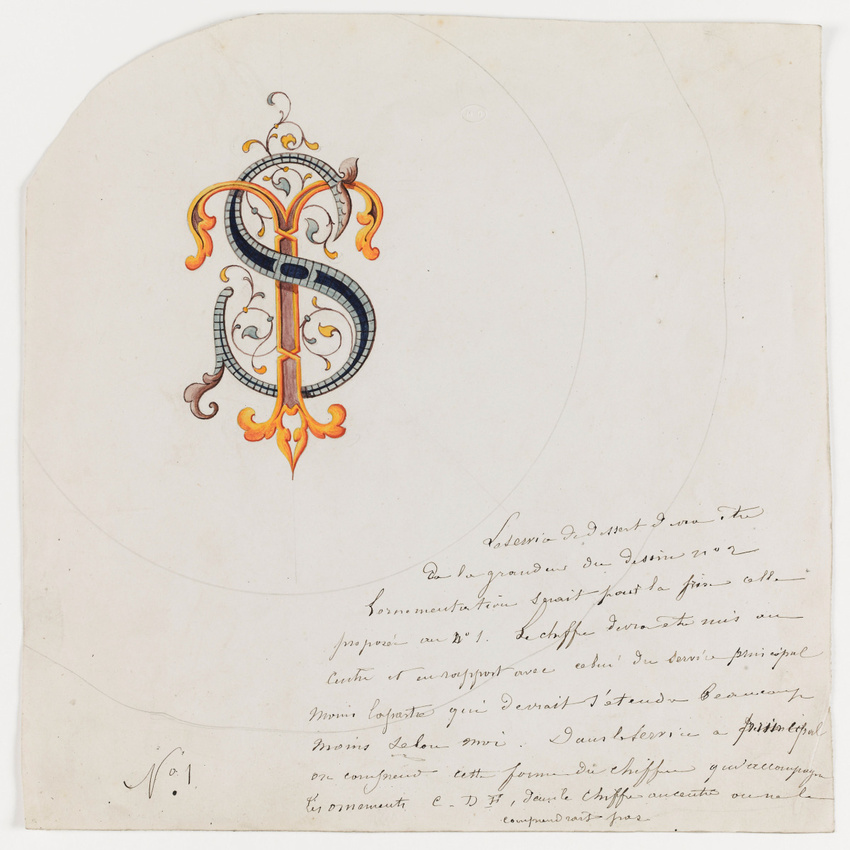 Le service de dessert devra être
de la grandeur du dessin no 2
L'ornementation serait pour la forme celle
proposée au No 1. Le chiffre devra être mis au
Centre et en rapport avec celui du service principal
moins la partie qui devrait s'étendre Beaucoup
moins selon moi. Dans le service a principal
on comprend cette forme du chiffre qu'accompagne
les ornements C-D, dans le chiffre au centre on ne le
comprendrait pas
No. 1